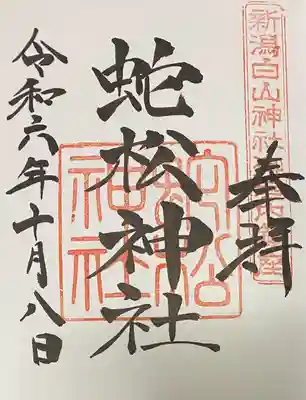 奉拝
蛇松神社
令和六年十月八日
新潟白山神社
蛇松神社